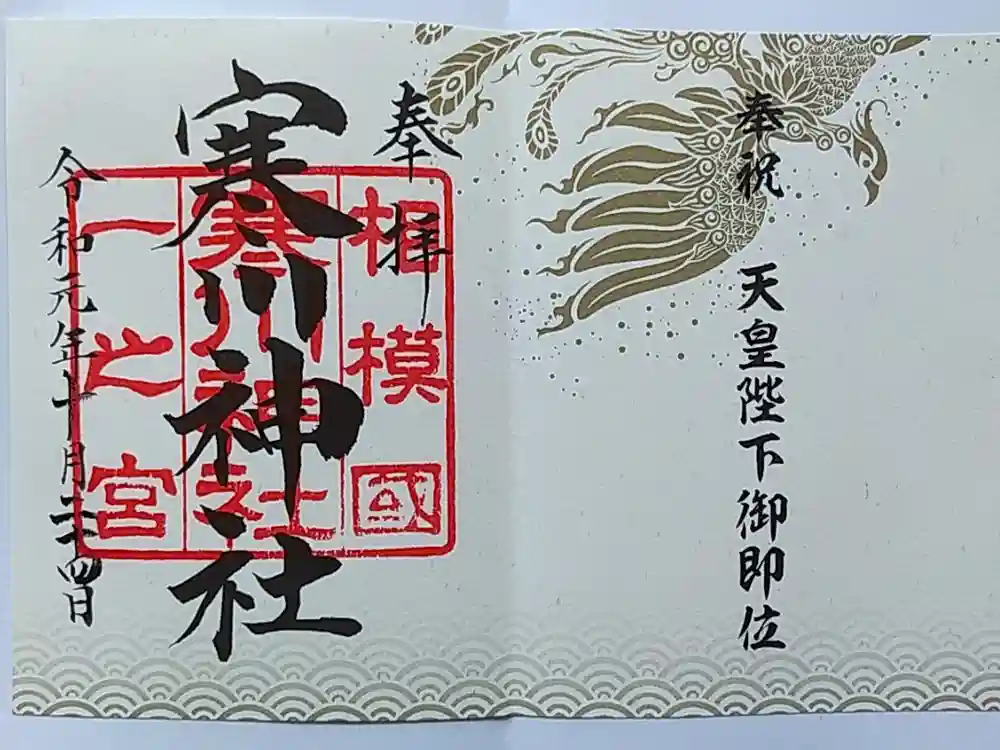 奉祝 天皇陛下御即位
奉拝
寒川神社
相模國
寒川神社
一之宮
令和元年十月二十四日